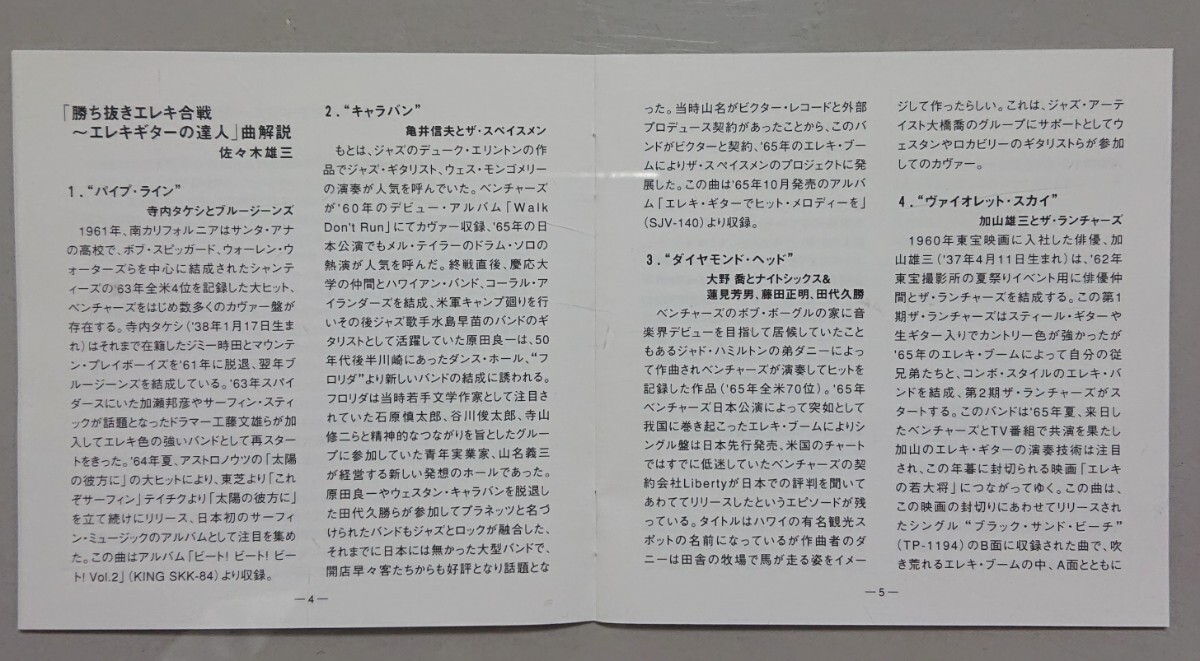 「勝ち抜きエレキ合戦
～エレキギターの達人」曲解説
佐々木雄三
1．“パイプ・ライン”
寺内タケシとブルージーンズ
1961年、南カリフォルニアはサンタ・アナ
の高校で、ボブ・スピッガード、ウォーレン・ウ
ォーターズらを中心に結成されたシャンティ
ーズの'63年全米4位を記録した大ヒット、
ベンチャーズをはじめ数多くのカヴァー盤が
存在する。寺内タケシ('38年1月17日生ま
れ)はそれまで在籍したジミー時田とマウンテ
ン・プレイボーイズを'61年に脱退、翌年ブ
ルージーンズを結成している。'63年スパイ
ダースにいた加瀬邦彦やサーフィン・スティ
ックが話題となったドラマー工藤文雄らが加
入してエレキ色の強いバンドとして再スター
トをきった。'64年夏、アストロノウツの「太陽
の彼方に」の大ヒットにより、東芝より「これ
ぞサーフィン」テイチクより「太陽の彼方に」
を立て続けにリリース、日本初のサーフィ
ン・ミュージックのアルバムとして注目を集め
た。この曲はアルバム「ビート! ビート! ビー
ト! Vol.2」(KING SKK-84)より収録。
2．“キャラバン”
亀井信夫とザ・スペイスメン
もとは、ジャズのデューク・エリントンの作
品でジャズ・ギタリスト、ウェス・モンゴメリー
の演奏が人気を呼んでいた。ベンチャーズ
が'60年のデビュー・アルバム「Walk
Don't Run」にてカヴァー収録、'65年の日
本公演でもメル・テイラーのドラム・ソロの
熱演が人気を呼んだ。終戦直後、慶応大
学の仲間とハワイアン・バンド、コーラル・ア
イランダーズを結成、米軍キャンプ廻りを行
いその後ジャズ歌手水島早苗のバンドのギ
タリストとして活躍していた原田良一は、50
年代後半川崎にあったダンス・ホール、“フ
ロリダ”より新しいバンドの結成に誘われる。
フロリダは当時若手文学作家として注目さ
れていた石原慎太郎、谷川俊太郎、寺山
修二らと精神的なつながりを旨としたグルー
プに参加していた青年実業家、山名義三
が経営する新しい発想のホールであった。
原田良一やウェスタン・キャラバンを脱退し
た田代久勝らが参加してプラネッツと名づ
けられたバンドもジャズとロックが融合した、
それまでに日本には無かった大型バンドで、
開店早々客たちからも好評となり話題とな
―4―
った。当時山名がビクター・レコードと外部
プロデュース契約があったことから、このバ
ンドがビクターと契約、'65年のエレキ・ブー
ムによりザ・スペイスメンのプロジェクトに発
展した。この曲は'65年10月発売のアルバ
ム「エレキ・ギターでヒット・メロディーを」
(SJV-140)より収録。
3．“ダイヤモンド・ヘッド”
大野 喬とナイトシックス&
蓮見芳男、藤田正明、田代久勝
ベンチャーズのボブ・ボーグルの家に音
楽界デビューを目指して居候していたこと
もあるジャド・ハミルトンの弟ダニーによっ
て作曲されベンチャーズが演奏してヒットを
記録した作品('65年全米70位)。'65年
ベンチャーズ日本公演によって突如として
我国に巻き起こったエレキ・ブームによりシ
ングル盤は日本先行発売、米国のチャート
ではすでに低迷していたベンチャーズの契
約会社Libertyが日本での評判を聞いて
あわててリリースしたというエピソードが残
っている。タイトルはハワイの有名観光ス
ポットの名前になっているが作曲者のダ
ニーは田舎の牧場で馬が走る姿をイメー
ジして作ったらしい。これは、ジャズ・アーテ
イスト大橋喬のグループにサポートとしてウ
ェスタンやロカビリーのギタリストらが参加
してのカヴァー。
4．“ヴァイオレット・スカイ”
加山雄三とザ・ランチャーズ
1960年東宝映画に入社した俳優、加
山雄三('37年4月11日生まれ)は、'62年
東宝撮影所の夏祭りイベント用に俳優仲
間とザ・ランチャーズを結成する。この第1
期ザ・ランチャーズはスティール・ギターや
生ギター入りでカントリー色が強かったが
'65年のエレキ・ブームによって自分の従
兄弟たちと、コンボ・スタイルのエレキ・バ
ンドを結成、第2期ザ・ランチャーズがス
タートする。このバンドは'65年夏、来日し
たベンチャーズとTV番組で共演を果たし
加山のエレキ・ギターの演奏技術は注目
され、この年暮に封切られる映画「エレキ
の若大将」につながってゆく。この曲は、
この映画の封切りにあわせてリリースされ
たシングル“ブラック・サンド・ビーチ”
(TP-1194)のB面に収録された曲で、吹
き荒れるエレキ・ブームの中、A面とともに
―5―